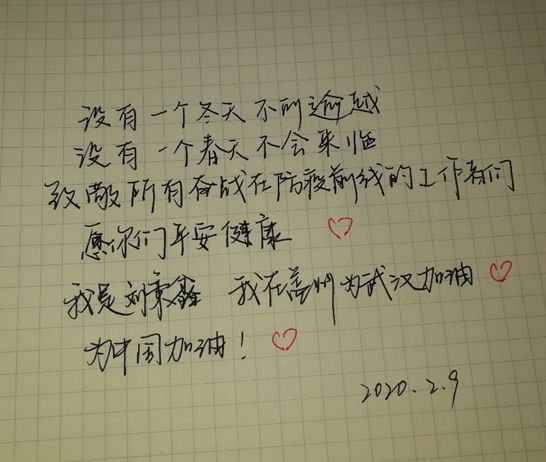 没有一个冬天不可逾越
没有一个春天不会来临
致敬所有奋战在防疫前线的工作者们
愿你们平安健康
我是刘鑫 我在盖州为武汉加油
为中国加油！
2020.2.9